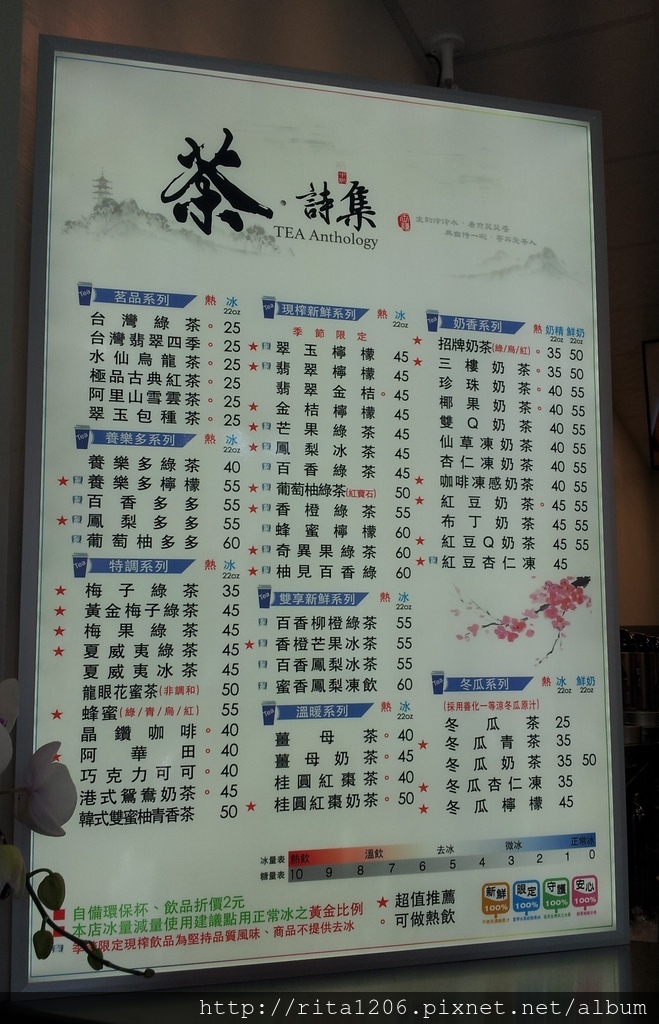 茶·詩集
TEA Anthology
茗品系列 熱 冰 22oz
台灣綠茶。25
台灣翡翠四季。25
水仙烏龍茶。25
極品古典紅茶。25
阿里山雪雲茶。25
翠玉包種茶。25
養樂多系列 冰 22oz
養樂多綠茶 40
★養樂多檸檬 55
百香多多 55
★鳳梨多多 55
葡萄柚多多 60
特調系列 熱 冰 22oz
★梅子綠茶 35
★黃金梅子綠茶 45
★梅果綠茶 45
★夏威夷綠茶 45
夏威夷冰茶 45
龍眼花蜜茶(非調和) 50
★蜂蜜(綠/青/烏/紅) 55
晶鑽咖啡。40
★阿華田。40
巧克力可可。40
港式鴛鴦奶茶。45
韓式雙蜜柚青香茶 50
現榨新鮮系列 熱 冰 22oz
季節限定
★翠玉檸檬 45
★翡翠檸檬 45
翡翠金桔。45
★金桔檸檬 45
★芒果綠茶 45
★鳳梨冰茶 45
百香綠茶 45
★葡萄柚綠茶(紅寶石) 50
★香橙綠茶 55
蜂蜜檸檬 60
★奇異果綠茶 60
★柚見百香綠 60
雙享新鮮系列 冰 22oz
百香柳橙綠茶 55
★香橙芒果冰茶 55
百香鳳梨冰茶 55
蜜香鳳梨凍飲 60
溫暖系列 熱 冰 22oz
薑母茶。40
薑母奶茶。45
桂圓紅棗茶。40
★桂圓紅棗奶茶。50
奶香系列 熱 奶精 22oz 鮮奶 22oz
★招牌奶茶(綠/烏/紅)。35 50
★三樓奶茶。35 50
珍珠奶茶。40 55
椰果奶茶。40 55
雙Q奶茶 40 55
仙草凍奶茶 40 55
杏仁凍奶茶 40 55
★咖啡凍感奶茶 40 55
★紅豆奶茶。45 55
布丁奶茶 45 55
★紅豆Q奶茶 45 55
★紅豆杏仁凍 45
冬瓜系列 熱 冰 22oz 鮮奶 22oz
(採用善化一等涼冬瓜原汁)
冬瓜茶 25
★冬瓜青茶 35
冬瓜奶茶 35 50
★冬瓜杏仁凍 35
★冬瓜檸檬 45
冰量表 熱飲 溫飲 去冰 微冰 正常冰
糖量表 10 9 8 7 6 5 4 3 2 1 0
自備環保杯、飲品折價2元
本店冰量減量使用建議點用正常冰之黃金比例
季節限定現榨飲品為堅持品質風味、商品不提供去冰
★超值推薦
。可做熱飲
新鮮 100%
限定 100%
守護 100%
安心 100%
http://rita1206.pixnet.net/album